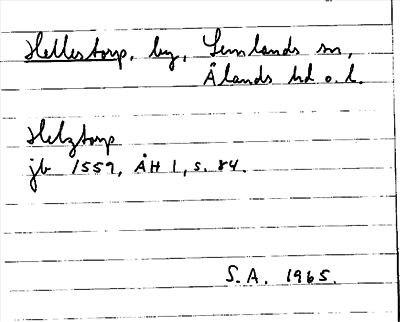 Hellestorp, by, Lemlands sn,
Ålands hd o. l.
Helztorp
jb 1559, ÅH 1, s. 84.
S.A. 1965.